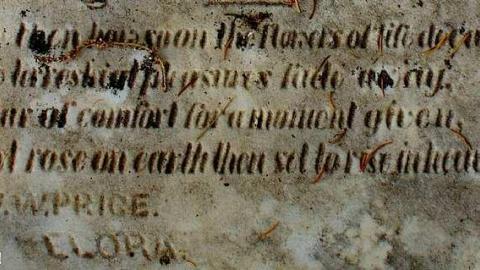 then how soon the flowers of life decay
terrestrial pleasures fade away,
of comfort for a moment given,
rose on earth then set to rise in
W. PRICE.
ELLORA.